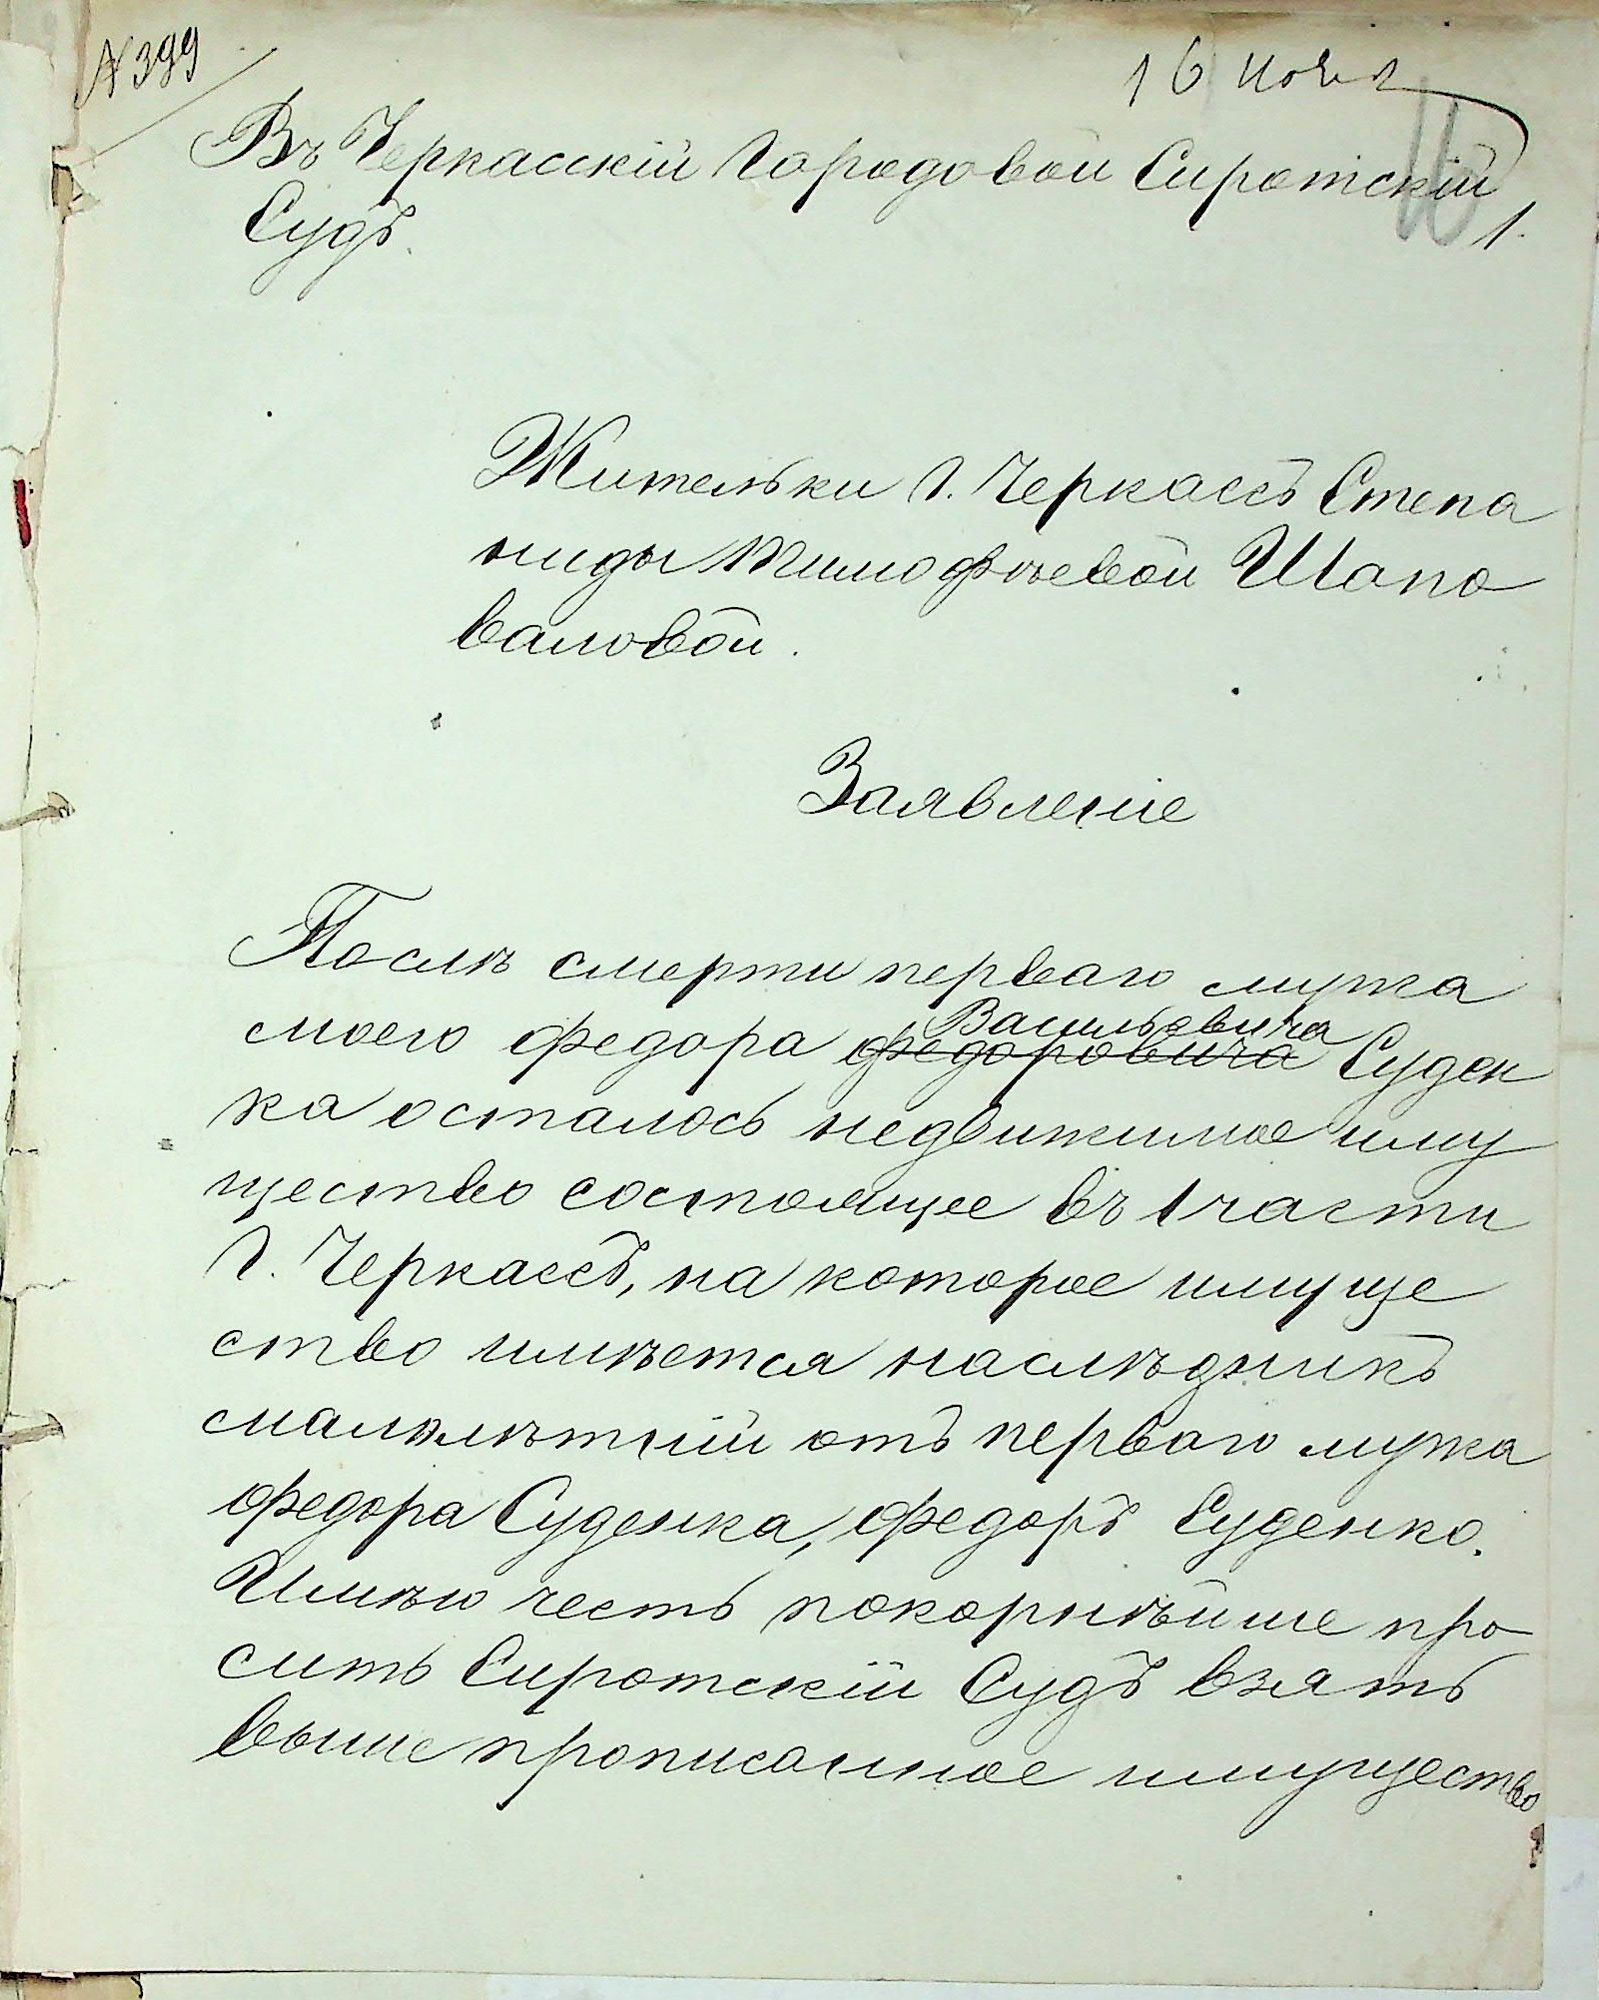 № 399
16 июня
Въ Черкасскій Городовой Сиротскій
1.
Судъ.
Жительки г. Черкассъ Степа
ниды Тимофѣевой Шапо
валовой.
Заявленіе
Послѣ смерти перваго мужа
Васильевича
моего Федора Федоровича Суден
ка осталось недвижимое иму
щество состоящее въ 1 части
г. Черкассъ, на которое имуще
ство имѣется наслѣдникъ
малолѣтній отъ перваго мужа
Федора Суденка, Федоръ Суденко.
Имѣю честь покорнѣйше про
сить Сиротскій Судъ взять
выше прописанное имущество